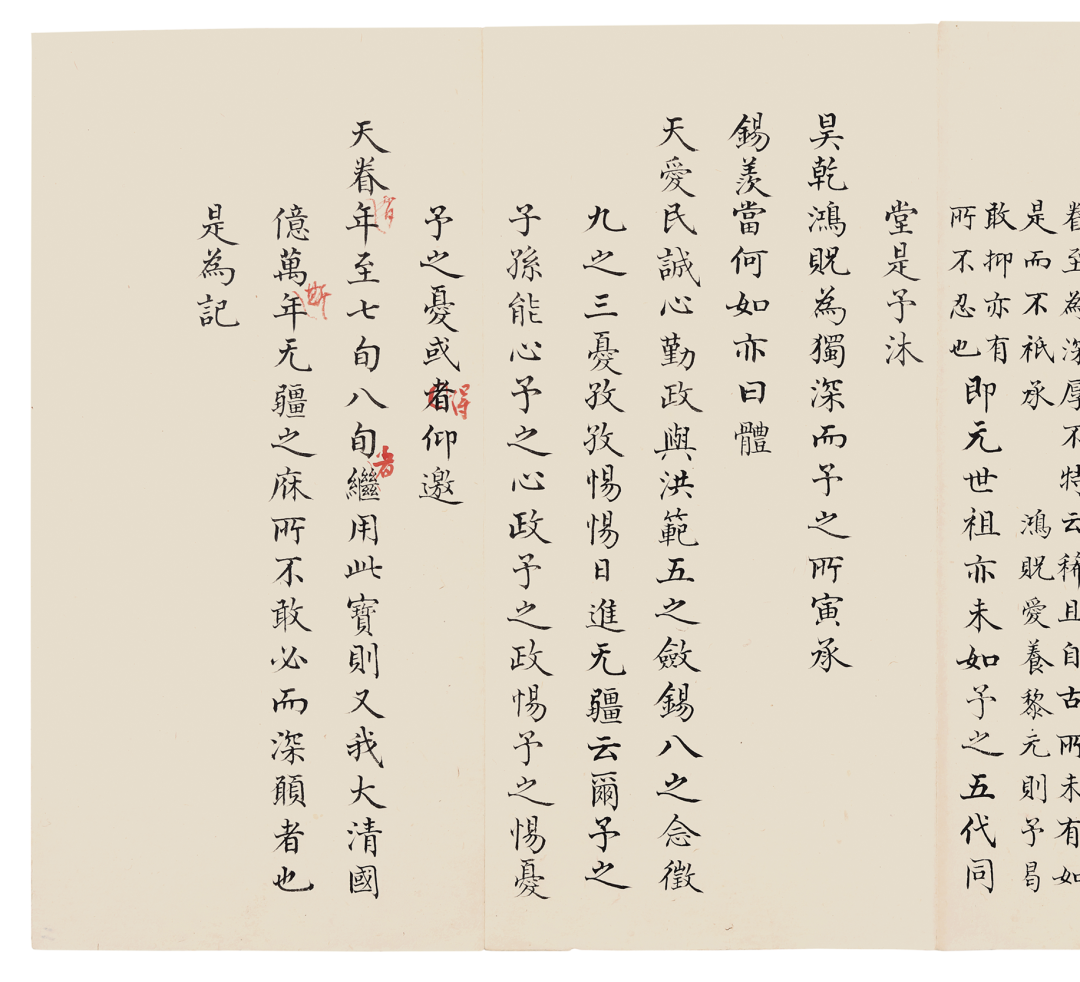 眷至為深厚不特云稀且自古所未有如
是而不祇承 鴻貺愛養黎元則予曷
敢抑亦有
所不忍也
即元世祖亦未如予之五代同
堂是予沐
昊乾鴻貺為獨深而予之所寅承
錫羨當何如亦曰體
天愛民誠心勤政與洪範五之斂錫八之念徵
九之三憂孜孜惕惕日進无疆云爾予之
子孫能心予之心政予之政惕予之惕憂
予之憂或者仰邀
得
天眷年至七旬八旬繼用此寶則又我大清國
者
億萬年无疆之庥所不敢必而深願者也
斯
是為記